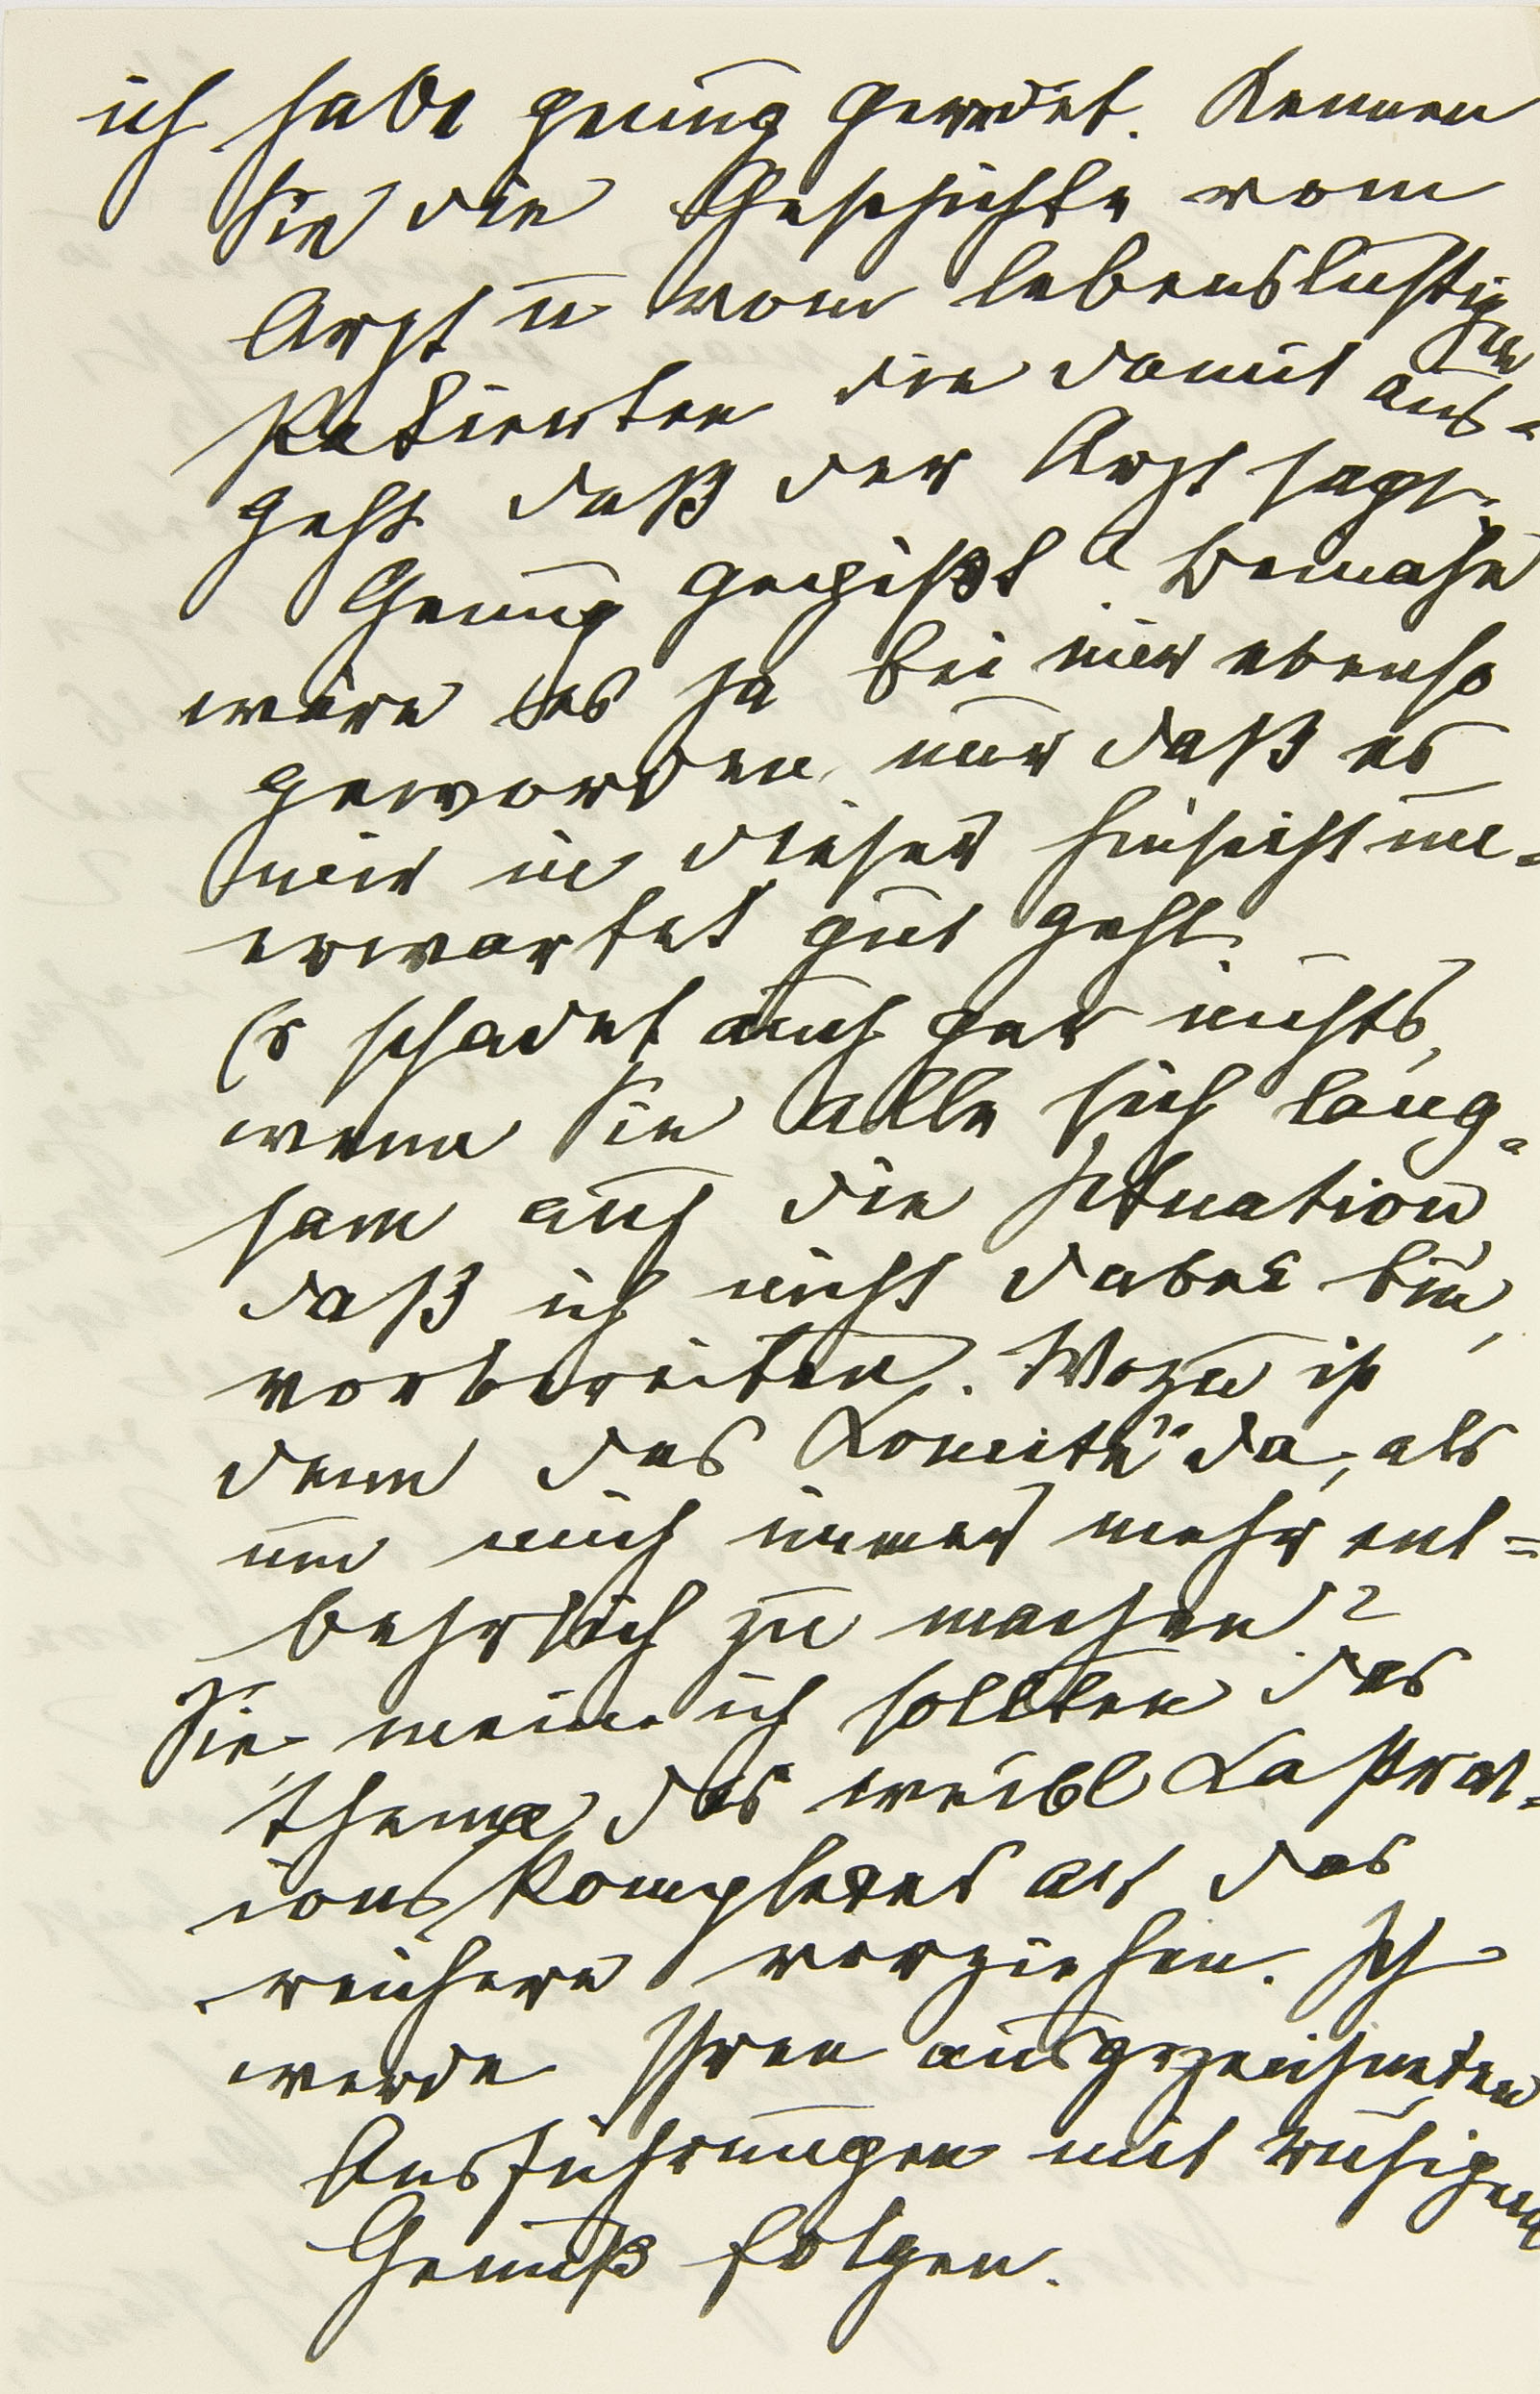 ich habe genug geredet. Kennen
Sie die Geschichte vom
Arzt u vom lebenslustigen
Patienten die damit aus-
geht daß der Arzt sagt:
Genug gegißt? Beinahe
wäre es ja bei mir ebenso
geworden, nur daß es
mir in dieser Hinsicht un-
erwartet gut geht.
Es schadet auch gar nichts,
wenn Sie alle sich lang-
sam auf die Situation,
daß ich nicht dabei bin,
vorbereiten. Wozu ist
denn das „Komite" da, als
um mich immer mehr ent=
behrlich zu machen?
Sie, meine ich sollten das
Thema des weibl Kastrat-
ionskomplexes als das
reichere vorziehen. Ich
werde Ihren ausgezeichneten
Ausführungen mit ruhigem
Genuß folgen.